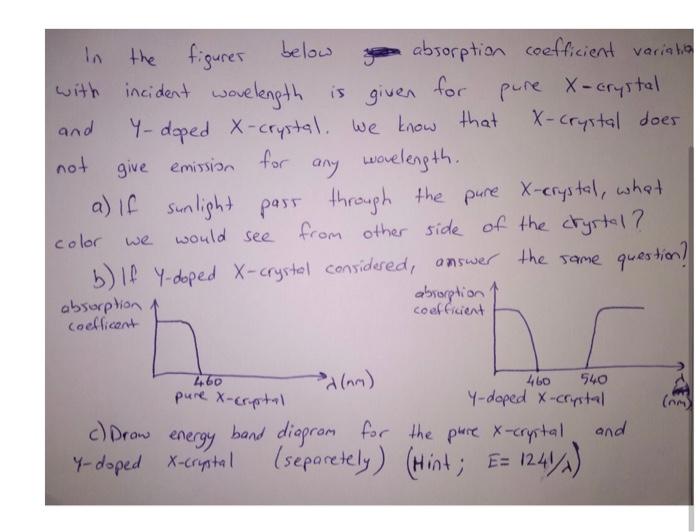 In the figures below absorption coefficient variation
with incident wavelength is given for pure X-crystal
and Y-doped X-crystal. We know that X-crystal does
not give emission for any wavelength.
a) If sunlight pass through the pure X-crystal, what
color we would see from other side of the crystal?
b) If Y-doped X-crystal considered, answer the same question?
absorption
coefficent
460
λ(nm)
pure X-crystal
absorption
coefficient
460 540
λ
(nm)
Y-doped X-crystal
c) Draw energy band diagram for the pure X-crystal and
Y-doped X-crystal (separetely) (Hint; E= 1241/λ)